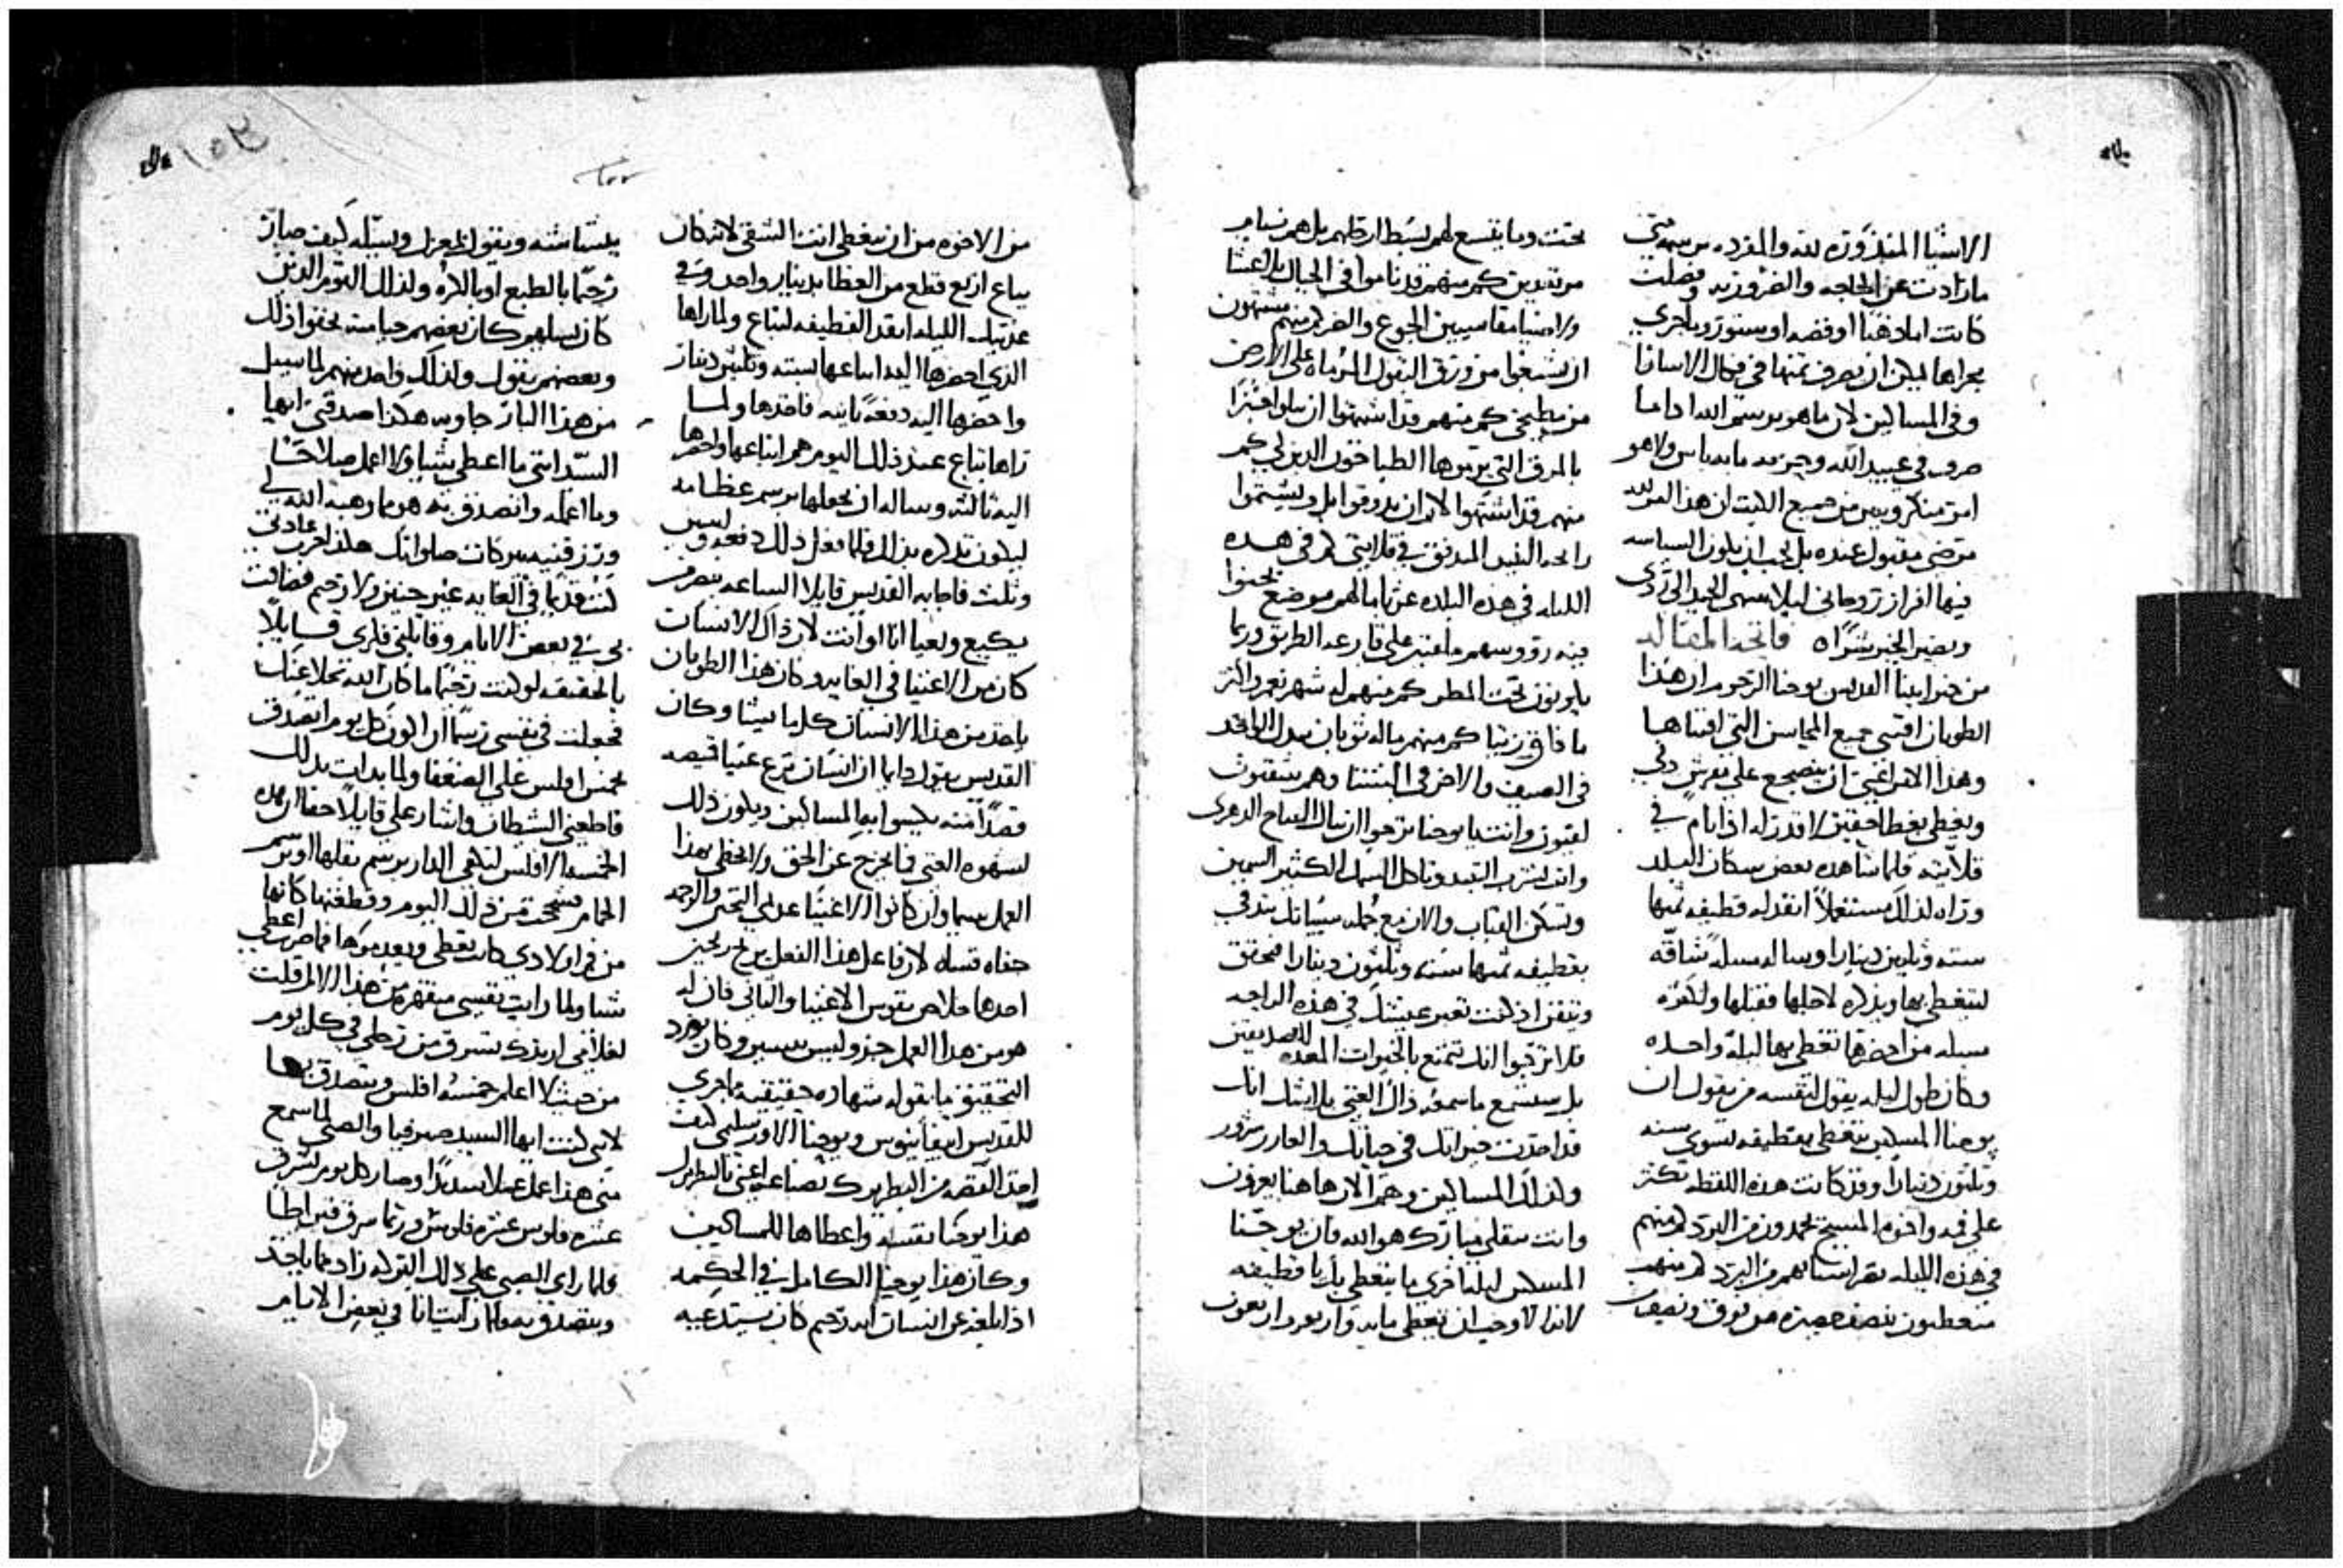 الاشيا المنذوره لله والمفرده برسمه متى
ما زادت عن الحاجه والضروريه وفضلت
كانت اما ذهبًا او فضه او ستور وما جرى
مجراها يمكن ان يصرف ثمنها في فكاك الاسارا
وفي المساكين لان ما هو برسم الله اذا ما
صرف في عبيد الله وحزبه ما به باس ولا هو
امر منكر ويبين من جميع الكتب ان هذا
مرضي مقبول عنده بل يجب ان يكون السياسه
فيها افراز روحاني ليلا ينتهي الجيد الى ردي
ويصير الخير شرًا فاتحة المقاله
من خبر ابينا القديس يوحنا الرحوم ان هذا
الطوبان اقتنى جميع المحاسن التي اقتناها
وهذا الامر اعني ان يضجع على فرش دني
ويغطي بغطا حقير لا قدر له اذا نام في
قلايته فلما شاهده بعض سكان البلد
وراه لذلك مستعملاً انفد له قطيفه ثمنها
سته وثلثين دينارا وساله مسله شاقه
ليتغطى بها ويذكره لاجلها فقبلها ولكثره
مسله من احضرها تغطى بها ليلة واحده
وكان طول ليله يقول لنفسه من يقول ان
يوحنا المسكين يتغطى بقطيفه تسوى سته
وثلثون دينارا وقد كانت هذه اللفظه تكثر
على فيه واخوة المسيح يجمدون من البرد كم منهم
في هذه الليله تقرقع اسنانهم من البرد كم منهم
متغطيون بنصف حصيره من فوق ونصف
تحت وما يتسع لهم بسط ارجلهم بل هم نيام
مرتعدين كم منهم قد ناموا في الجبال بلا عشا
ولا ضيا مقاسيين الجوع والضر كم منهم يشتهون
ان يشبعوا من ورق البقول المرماه على الارض
من مطبخي كم منهم قد اشتهوا ان يبلوا خبزًا
بالمرق التي يرموها الطباخون الذين لي كم
منهم قد اشتهوا لا ان يذوقوا بل ويشتموا
رايحة النبيد المدفق في قلايتي كم في هذه
الليله في هذه البلده غربا ما لهم موضع يحنوا
فيه رووسهم ملقين على قارعة الطريق وربما
ياوون تحت المطر كم منهم له شهر نعم واكثر
ما ذاق زيتا كم منهم ما له ثوبان يبدل الواحد
في الصيف والاخر في الشتا وهم يشقون
لغبون وانت يا يوحنا ترجوا ان تنال النياح الدهري
وانت تشرب النبيد وتاكل السمك الكثير السمين
وتسكن القباب والان مع جملة سيياتك تتدفي
بقطيفه ثمنها سته وثلثون دينارا فتحقق
وتيقن اذ كنت تعبر عيشك في هذه الراحه
فلا ترجوا انك تتمتع بالخيرات المعده للصديقين
بل ستسمع ما سمعه ذاك الغني يا ابنك انك
قد اخذت خيراتك في حياتك والعازر شرور
وكذلك المساكين وهم الان هاهنا يعزون
وانت تتقلى مبارك هو الله فان يوحنا
المسكين ليلة اخرى ما يتغطى بك يا قطيفه
لانه الاوجب ان يتغطى مايه واربعه واربعون
من الاخوه من ان تتغطى انت الشقي لانه كان
يباع اربع قطع من الغطا بدينار واحد وفي
غد تلك الليله انفد القطيفه لتباع ولما راها
الذي احضرها اليه ابتاعها بسته وثلثين دينار
واحضرها اليه دفعة ثانيه فاخذها ولما
راها تباع عند ذلك اليوم هم ابتاعها واحضرها
اليه ثالثه وساله ان يجعلها برسم غطا به
ليكون تذكره بذلك فلما فعل ذلك دفعتين
وثلث فاجابه القديس قايلا الساعه ننظر من
يكيع ويعيا انا او انت لان ذاك الانسان
كان من الاغنيا في الغايه وكان هذا الطوبان
ياخذ من هذا الانسان كل ما شيا وكان
القديس يقول دايما ان انسان نزع غنيا قميصه
قصدًا منه يكسوا بها المساكين ويكون ذلك
لشهوة الغني فما يخرج عن الحق ولا يخطي بهذا
العمل سيما وان كانوا الاغنيا عديمي التحنن والرحمه
جفاه قساه لان فاعل هذا الفعل يربح ربحين
احدهما خلاص نفوس الاغنيا والثاني فان له
هو من هذا العمل جزو ليس يسير وكان يورد
التحقيق ما يقوله شهاده حقيقيه ما جرى
للقديس ابيفانيوس ويوحنا الاورشليمي كيف
اخذ الفضه من البطريرك بصناعه اعني بالبطريرك
هذا يوحنا نفسه واعطاها للمساكين
وكان هذا يوحنا الكامل في الحكمه
اذا بلغه عن انسان انه رحيم كان يستدعيه
يلتمسه ويقول له بمعزل ويسيله كيف صار
رحيما بالطبع او بالاراه وكذلك القوم الذين
كان يسلهم كان بعضهم حيا منه يخفوا ذلك
وبعضهم يقول وكذلك واحد منهم لما سيل
من هذا البار جاوبه هكذا صدقني ايها
السيد انني ما اعطي شيا ولا اعمل صلاحًا
وما اعمله واتصدق به هو ما وهبه الله لي
ورزقنيه ببركات صلواتك هكذا جرت عادتي
كنت قديما في الغايه غير حنين ولا رحيم فضاقت
بي في بعض الايام وقابلني فكري قايلاً
بالحقيقه لو كنت رحيما ما كان الله تخلا عنك
فجعلت في نفسي رسما ان اكون كل يوم اتصدق
بخمس افلس على الضعفا ولما بدات بذلك
قاطعني الشيطان واشار علي قايلاً حقا ان هذه
الخمسه الافلس لتكفي الدار برسم بقلها او برسم
الحمام فشححت من ذلك اليوم وقطعتها كانها
من فم اولادي كانت تعطى وبعد يومها فما صرت اعطي
شيا ولما رايت نفسي متقهره من هذا الامر قلت
لغلامي اريدك تسرق من زحلي في كل يوم
من حيث لا اعلم خمسة افلس وتتصدق بها
لانني كنت ايها السيد صيرفيا والصبي لما سمع
مني هذا عمل عملا سديدًا وصار كل يوم يسرق
عشره فلوس عشره فلوس وربما سرق قيراطا
فلما راى الصبي على ذلك البركه زاد مما ياخذ
ويتصدق به ولما رايت انا في بعض الايام